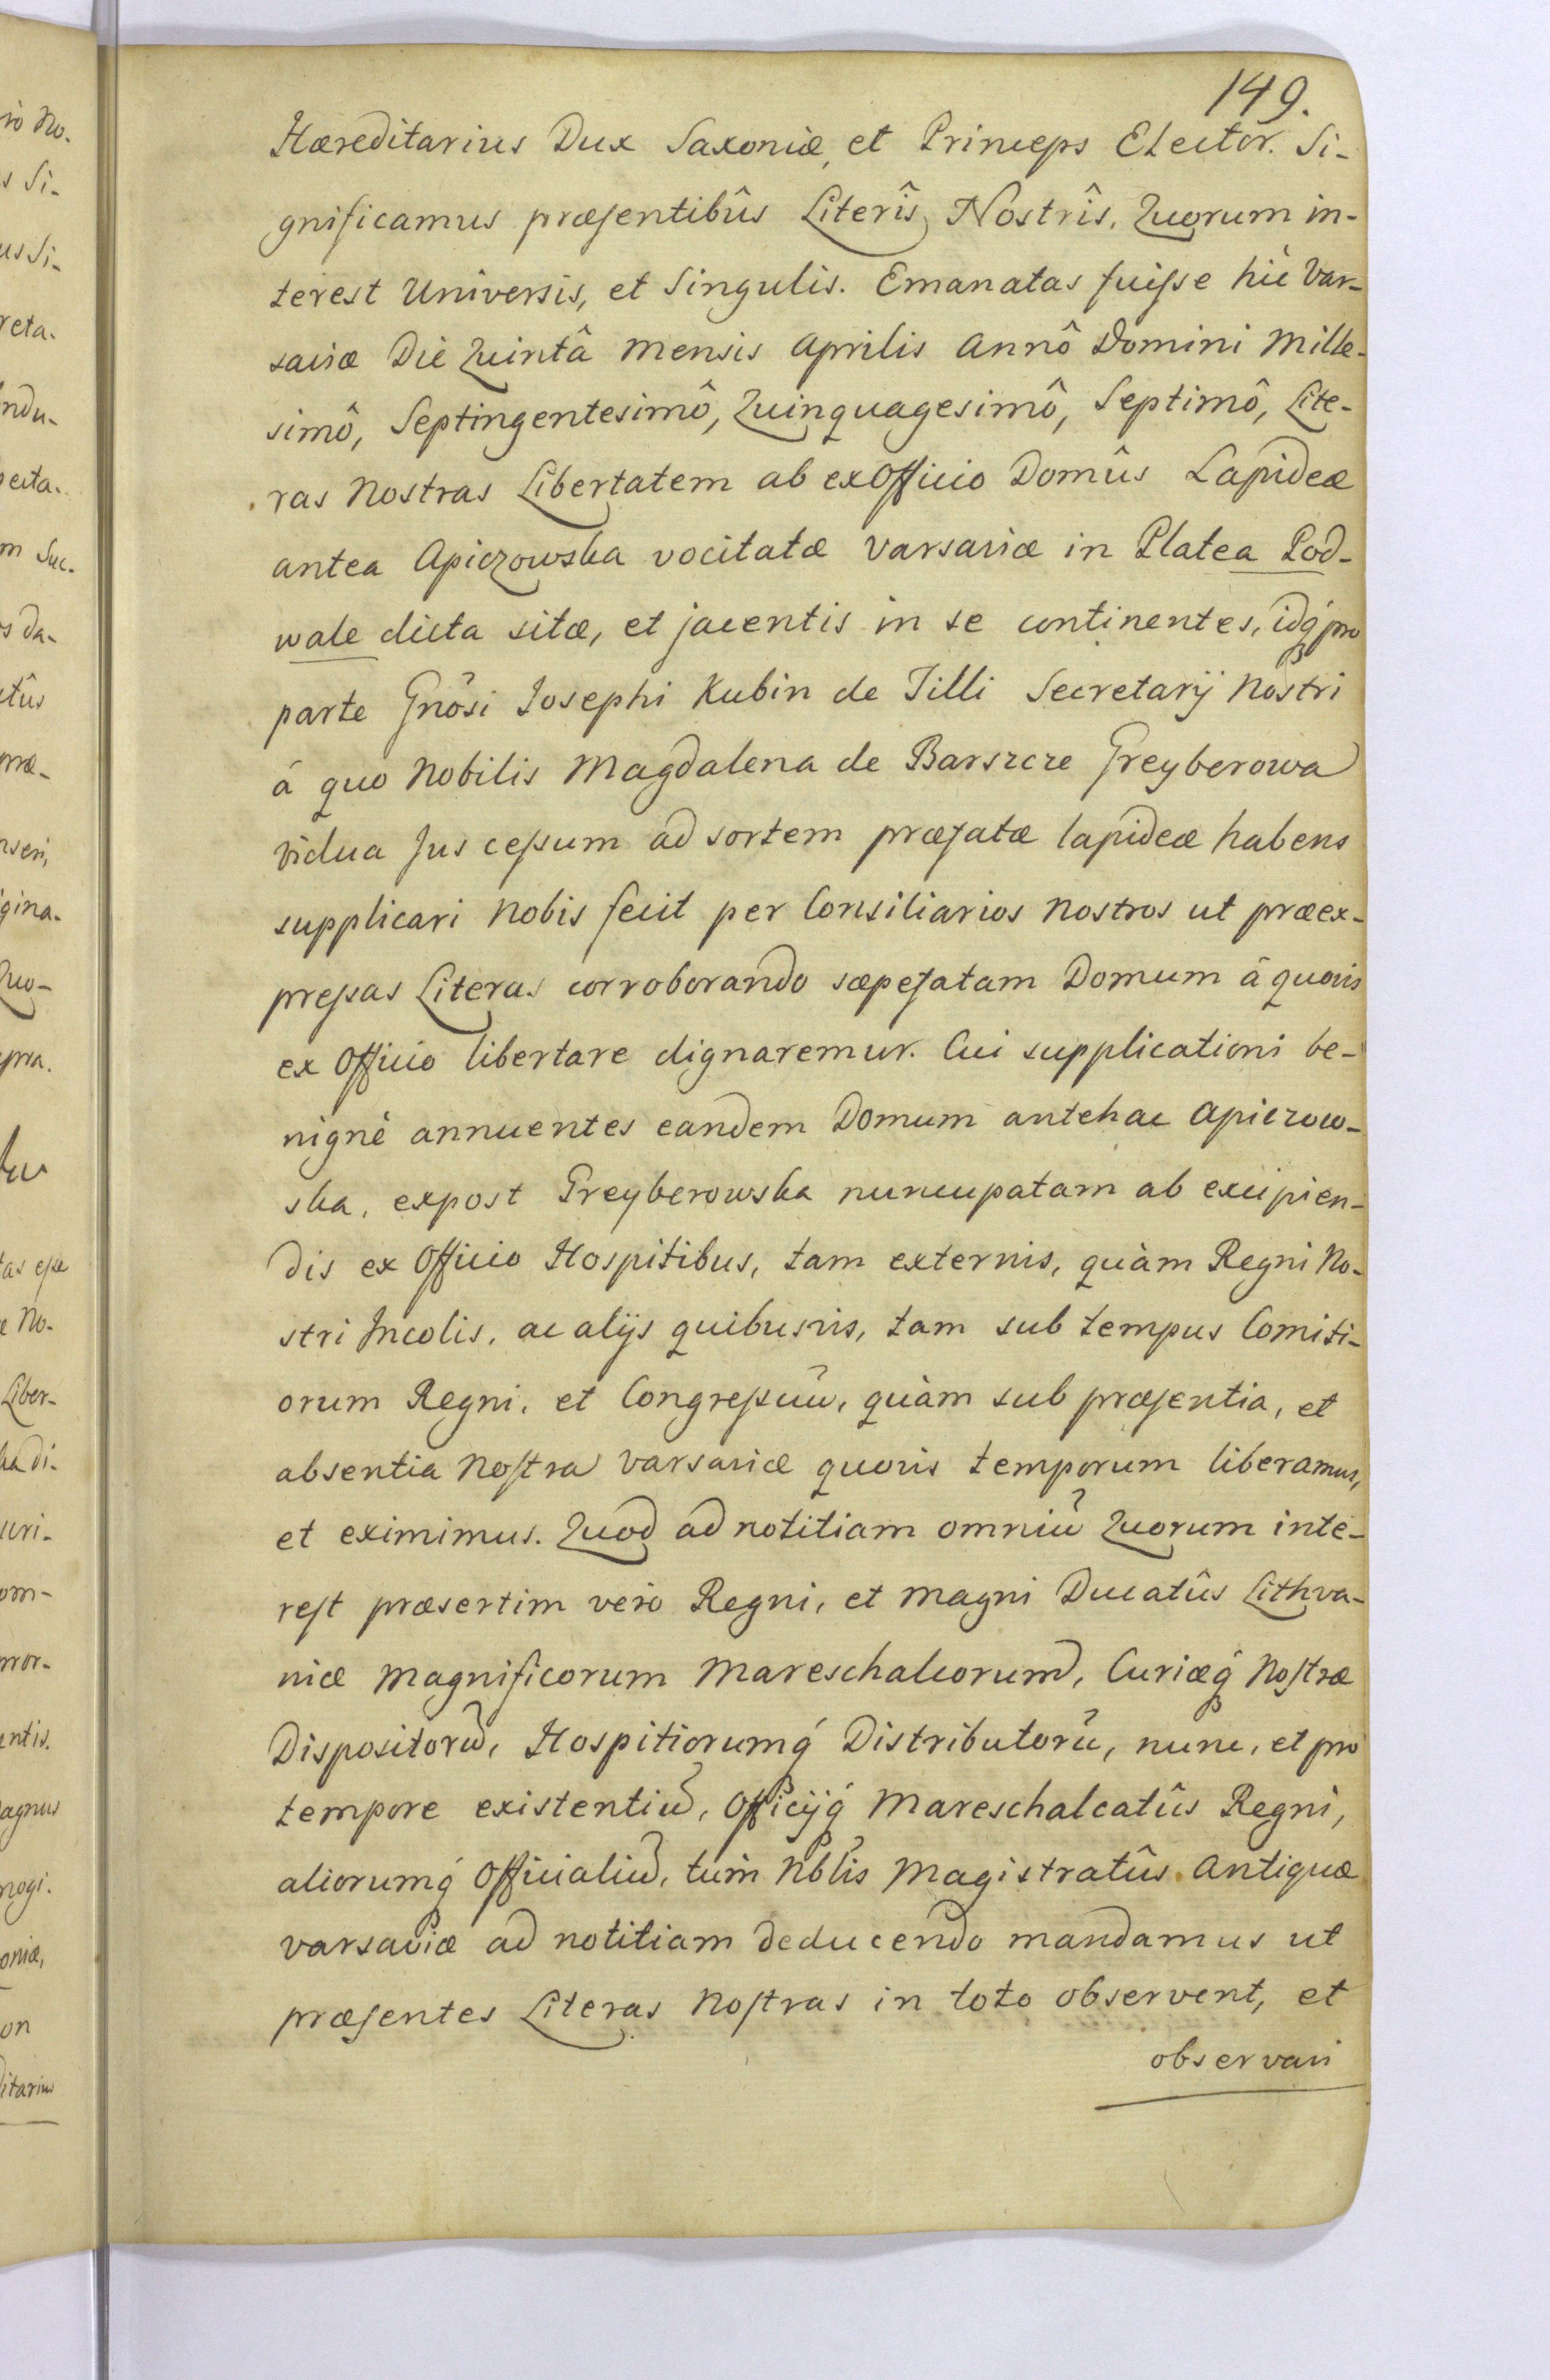 149.
Hæreditarius Dux Saxoniæ, et Princeps Elector. Si-
gnificamus præsentibûs Literîs Nostrîs, Quorum in-
terest Universis, et Singulis. Emanatas fuisse hic Var-
saviæ Die Quintâ Mensis Aprilis Annô Domini Mille-
simô, Septingentesimô, Quinquagesimô, Septimô, Lite-
ras Nostras Libertatem ab exOfficio Domûs Lapideæ
antea Apiczowska vocitatæ Varsaviæ in Platea Pod-
wale dicta sitæ, et jacentis in se continentes, idq́ pro
parte Gnôsi Josephi Kubin de Tilli Secretarij Nostri
á quo Nobilis Magdalena de Barszcze Greyberowa
vidua Jus cessum ad sortem præfatæ lapideæ habens
supplicari Nobis fecit per Consiliarios Nostros ut præex-
pressas Literas corroborando sæpefatam Domum â quovis
ex Officio libertare dignaremur. Cui supplicationi be-
nignè annuentes eandem Domum antehac Apiczow-
ska, expost Greyberowska nuncupatam ab excipien-
dis ex Officio Hospitibus, tam externis, quàm Regni No-
stri Incolis, ac alijs quibusvis, tam sub tempus Comiti-
orum Regni, et Congressuũ, quàm sub præsentia, et
absentia Nostra Varsaviæ quovis temporum liberamus,
et eximimus. Quod ad notitiam omniũ Quorum inte-
rest præsertim vero Regni, et Magni Ducatûs Lithva-
niæ Magnificorum Mareschalcorum, Curiæq́ Nostræ
Dispositorũ, Hospitiorumq́ Distributorũ, nunc, et pro
tempore existentiũ, Officijq́ Mareschalcatûs Regni,
aliorumq́ Officialiũ, tum Nblis Magistratûs Antiquæ
Varsaviæ ad notitiam deducendo mandamus ut
præsentes Literas Nostras in toto observent, et
observari